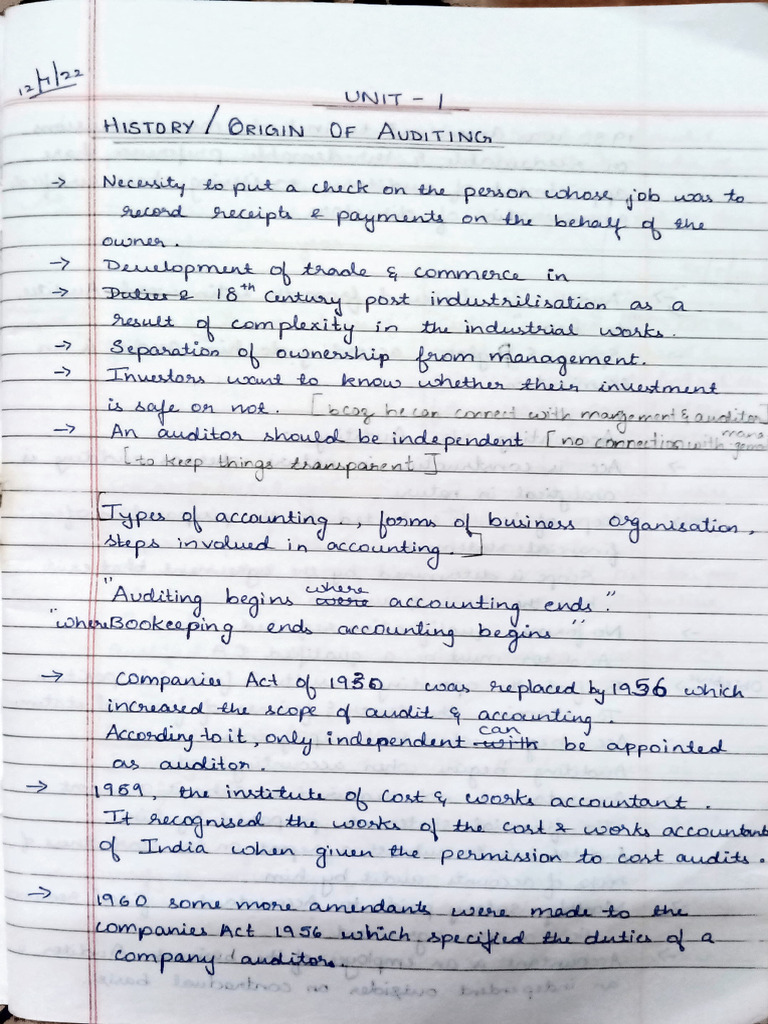 12/7/22
UNIT - 1
HISTORY / ORIGIN OF AUDITING
→ Necessity to put a check on the person whose job was to
record receipts & payments on the behalf of the
owner.
→ Development of trade & commerce in
→ Duties & 18th Century post industrilisation as a
result of complexity in the industrial works.
→ Separation of ownership from management.
→ Investors want to know whether their investment
is safe or not. [bcoz he can connect with mangement & auditor]
→ An auditor should be independent [no connection with
[to keep things transparent]
[Types of accounting., forms of business organisation,
steps involved in accounting.]
"Auditing begins were where accounting ends".
"where Bookeeping ends accounting begins"
→ Companies Act of 1930 was replaced by 1956 which
increased the scope of audit & accounting.
According to it, only independent with can be appointed
as auditor.
→ 1959, the institute of cost & works accountant.
It recognised the works of the cost & works accountants
of India when given the permission to cost audits.
→ 1960 some more amendants were made to the
companies Act 1956 which specified the duties of a
company auditors.